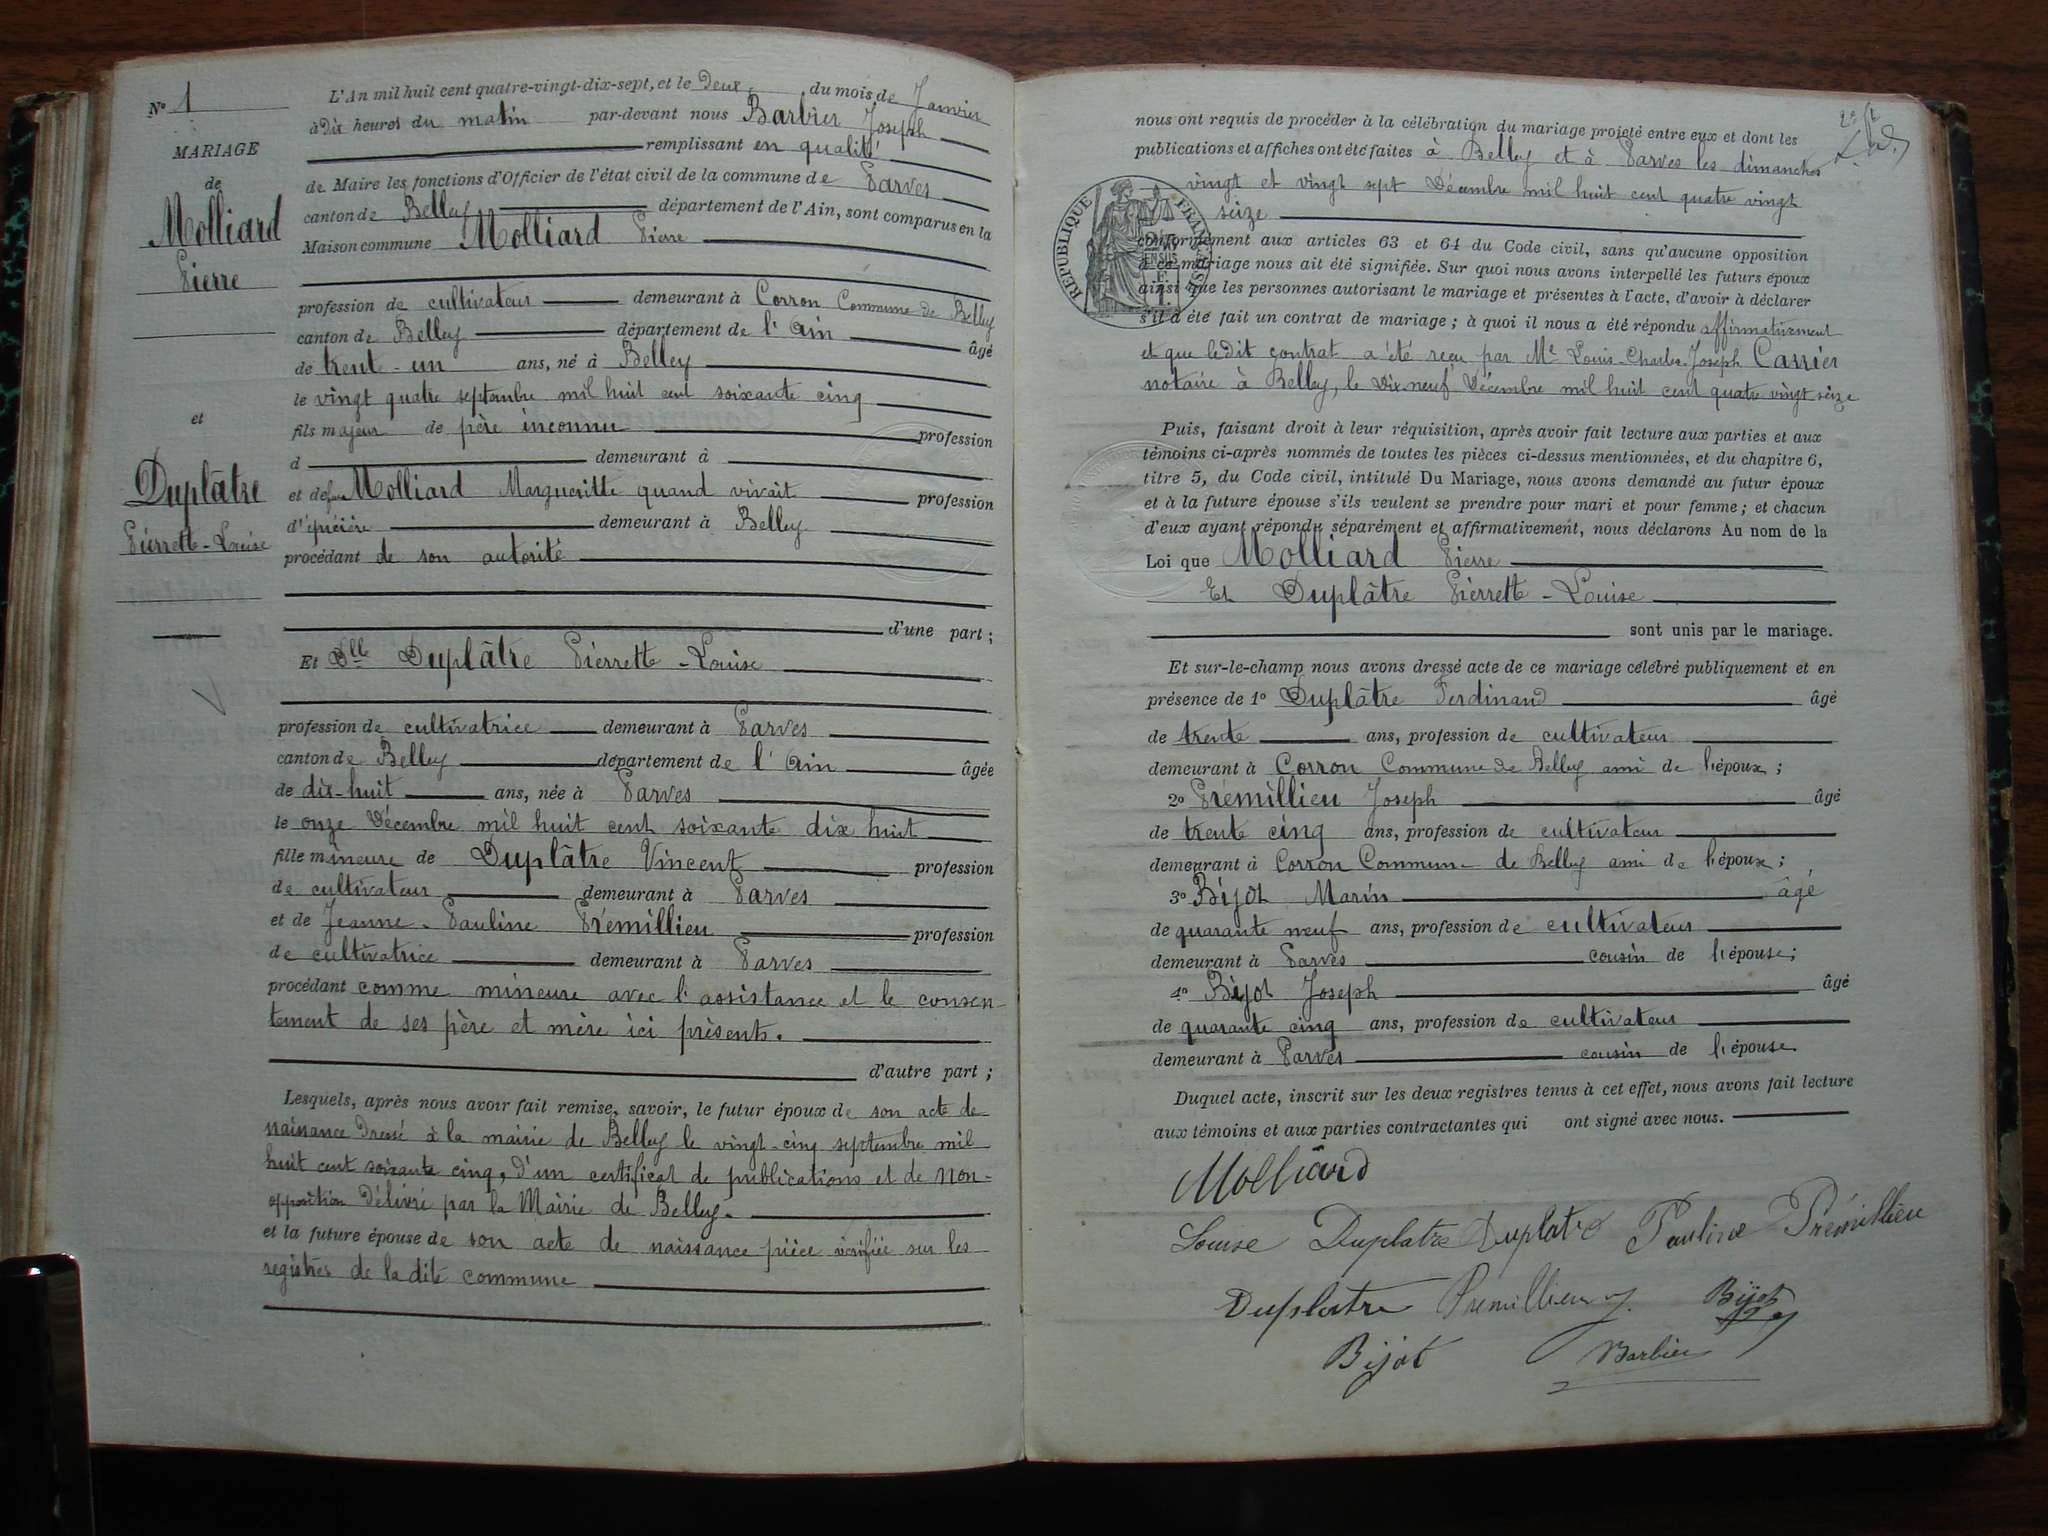 N° 1
MARIAGE
de
Molliard
Pierre
et
Duplâtre
Pierrette-Louise
L'An mil huit cent quatre-vingt-dix-sept, et le Deux du mois de Janvier
à Dix heures du matin par-devant nous Barbier Joseph
remplissant en qualité
de Maire les fonctions d'Officier de l'état civil de la commune de Parves
canton de Belley département de l'Ain, sont comparus en la
Maison commune Molliard Pierre
profession de cultivateur demeurant à Corron Commune de Belley
canton de Belley département de l'Ain âgé
de trent-un ans, né à Belley
le vingt quatre septembre mil huit cent soixante cinq
fils majeur de père inconnu profession
d demeurant à
et de feue Molliard Margueritte quand vivait profession
d'épicière demeurant à Belley
procédant de son autorité
d'une part ;
Et Dlle Duplâtre Pierrette-Louise
profession de cultivatrice demeurant à Parves
canton de Belley département de l'Ain âgée
de dix-huit ans, née à Parves
le onze Décembre mil huit cent soixante dix huit
fille mineure de Duplâtre Vincent profession
de cultivateur demeurant à Parves
et de Jeanne-Pauline Prémillieu profession
de cultivatrice demeurant à Parves
procédant comme mineure avec l'assistance et le consen-
tement de ses père et mère ici présents.
d'autre part ;
Lesquels, après nous avoir fait remise, savoir, le futur époux de son acte de
naissance Dressé à la mairie de Belley le vingt-cinq septembre mil
huit cent soixante cinq, D'un certificat de publications et de non=
opposition Délivré par la Mairie de Belley.
et la future épouse de son acte de naissance pièce vérifiée sur les
registres de la dite commune
nous ont requis de procéder à la célébration du mariage projeté entre eux et dont les
publications et affiches ont été faites à Belley et à Parves les dimanches
vingt et vingt sept Décembre mil huit cent quatre vingt
seize
REPUBLIQUE FRANÇAISE
conformément aux articles 63 et 64 du Code civil, sans qu'aucune opposition
à ce mariage nous ait été signifiée. Sur quoi nous avons interpellé les futurs époux
ainsi que les personnes autorisant le mariage et présentes à l'acte, d'avoir à déclarer
s'il a été fait un contrat de mariage ; à quoi il nous a été répondu affirmativement
et que ledit contrat a été reçu par Me Louis-Charles-Joseph Carrier
notaire à Belley, le Dix-neuf Décembre mil huit cent quatre vingt seize
Puis, faisant droit à leur réquisition, après avoir fait lecture aux parties et aux
témoins ci-après nommés de toutes les pièces ci-dessus mentionnées, et du chapitre 6,
titre 5, du Code civil, intitulé Du Mariage, nous avons demandé au futur époux
et à la future épouse s'ils veulent se prendre pour mari et pour femme ; et chacun
d'eux ayant répondu séparément et affirmativement, nous déclarons Au nom de la
Loi que Molliard Pierre
Et Duplâtre Pierrette-Louise
sont unis par le mariage.
Et sur-le-champ nous avons dressé acte de ce mariage célébré publiquement et en
présence de 1° Duplâtre Ferdinand âgé
de trente ans, profession de cultivateur
demeurant à Corron Commune de Belley ami de l'époux ;
2° Prémillieu Joseph âgé
de trente cinq ans, profession de cultivateur
demeurant à Corron Commune de Belley ami de l'époux ;
3° Bijot Marin âgé
de quarante neuf ans, profession de cultivateur
demeurant à Parves cousin de l'épouse ;
4° Bijot Joseph âgé
de quarante cinq ans, profession de cultivateur
demeurant à Parves cousin de l'épouse
Duquel acte, inscrit sur les deux registres tenus à cet effet, nous avons fait lecture
aux témoins et aux parties contractantes qui ont signé avec nous.
Molliard
Louise Duplatre Duplatre Pauline Prémillieu
Duplatre Prémillieu J. Bijot
Bijot Barbier